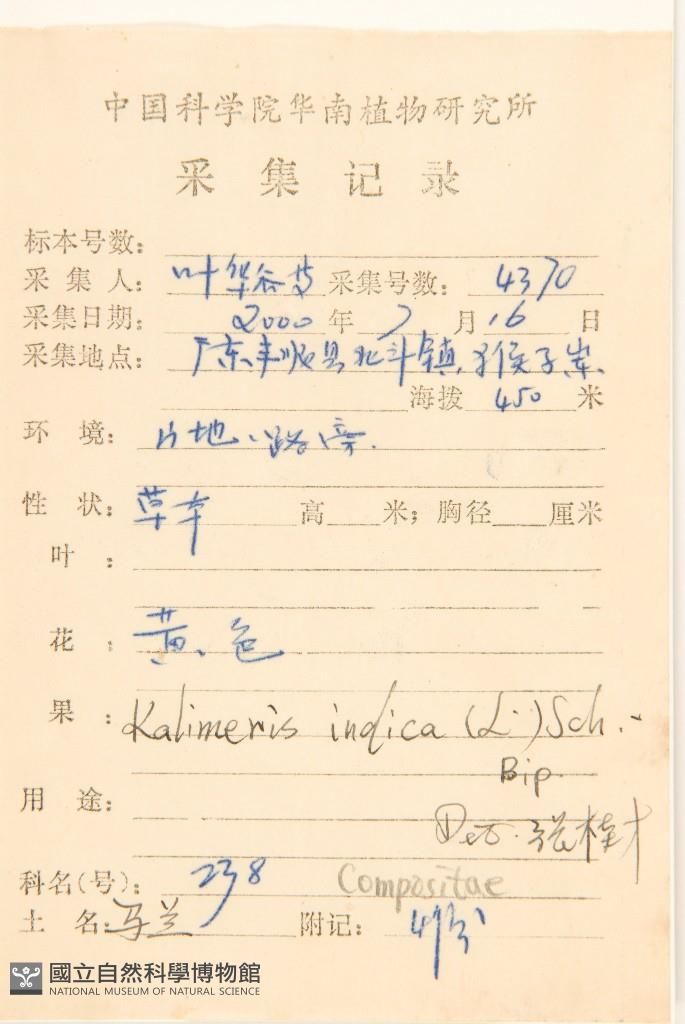 中国科学院华南植物研究所
采集记录
标本号数：
采集人：叶华谷等 采集号数：4370
采集日期：2000年7月16日
采集地点：广东丰顺县北斗镇，猴子崬。
海拨 450 米
环境：山地、路旁.
性状：草本 高 米；胸径 厘米
叶：
花：黄色
果：
Kalimeris indica (L.) Sch.-
Bip.
用途：
Det. 张桂才
科名(号)：238 Compositae
土名：马兰 附记：4份
國立自然科學博物館
NATIONAL MUSEUM OF NATURAL SCIENCE